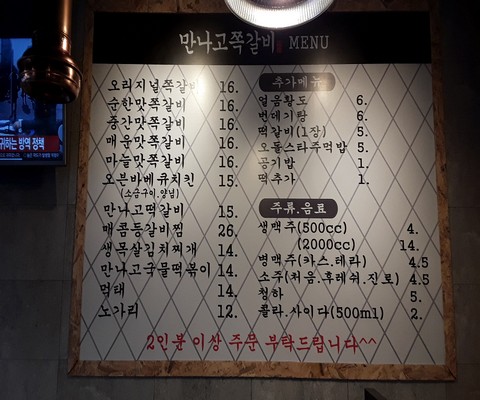 만나고쪽갈비 MENU
오리지널쪽갈비 16.
순한맛쪽갈비 16.
중간맛쪽갈비 16.
매운맛쪽갈비 16.
마늘맛쪽갈비 16.
오븐바베큐치킨 15.
(소금구이.양념)
만나고떡갈비 15.
매콤등갈비찜 26.
생목살김치찌개 14.
만나고국물떡볶이 14.
먹태 14.
노가리 12.
추가메뉴
얼음황도 6.
번데기탕 6.
떡갈비(1장) 5.
오돌스타주먹밥 5.
공기밥 1.
떡추가 1.
주류.음료
생맥주(500cc) 4.
(2000cc) 14.
병맥주(카스.테라) 4.5
소주(처음.후레쉬.진로) 4.5
청하 5.
콜라.사이다(500ml) 2.
2인분 이상 주문 부탁드립니다^^
귀하는 방역 정책